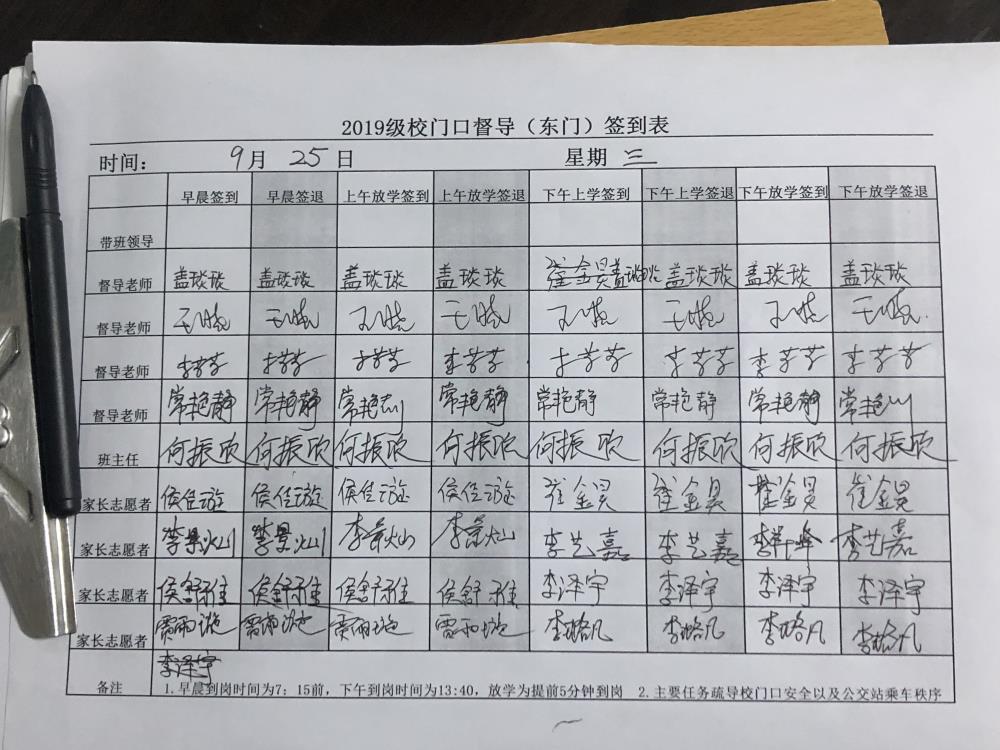 2019级校门口督导（东门）签到表
时间： 9月 25日 星期 三
早晨签到 早晨签退 上午放学签到 上午放学签退 下午上学签到 下午上学签退 下午放学签到 下午放学签退
带班领导
督导老师 盖琰琰 盖琰琰 盖琰琰 盖琰琰 崔金昊 盖琰琰 盖琰琰 盖琰琰
督导老师 王晓 王晓 王晓 王晓 王晓 王晓 王晓 王晓
督导老师 李芳芳 李芳芳 李芳芳 李芳芳 李芳芳 李芳芳 李芳芳 李芳芳
督导老师 常艳静 常艳静 常艳 常艳静 常艳静 常艳静 常艳静 常艳
班主任 何振欣 何振欣 何振欣 何振欣 何振欣 何振欣 何振欣 何振欣
家长志愿者 侯佳璇 侯佳璇 侯佳璇 侯佳璇 崔金昊 崔金昊 崔金昊 崔金昊
家长志愿者 李景灿 李景灿 李景灿 李景灿 李艺嘉 李艺嘉 李艺嘉
家长志愿者 侯舒雅 侯舒雅 侯舒雅 侯舒雅 李泽宇 李泽宇 李泽宇 李泽宇
家长志愿者 贾雨 贾雨 贾雨 贾雨 李格凡 李格凡 李格凡 李格凡
李泽宇
备注 1.早晨到岗时间为7：15前，下午到岗时间为13:40，放学为提前5分钟到岗 2.主要任务疏导校门口安全以及公交站乘车秩序